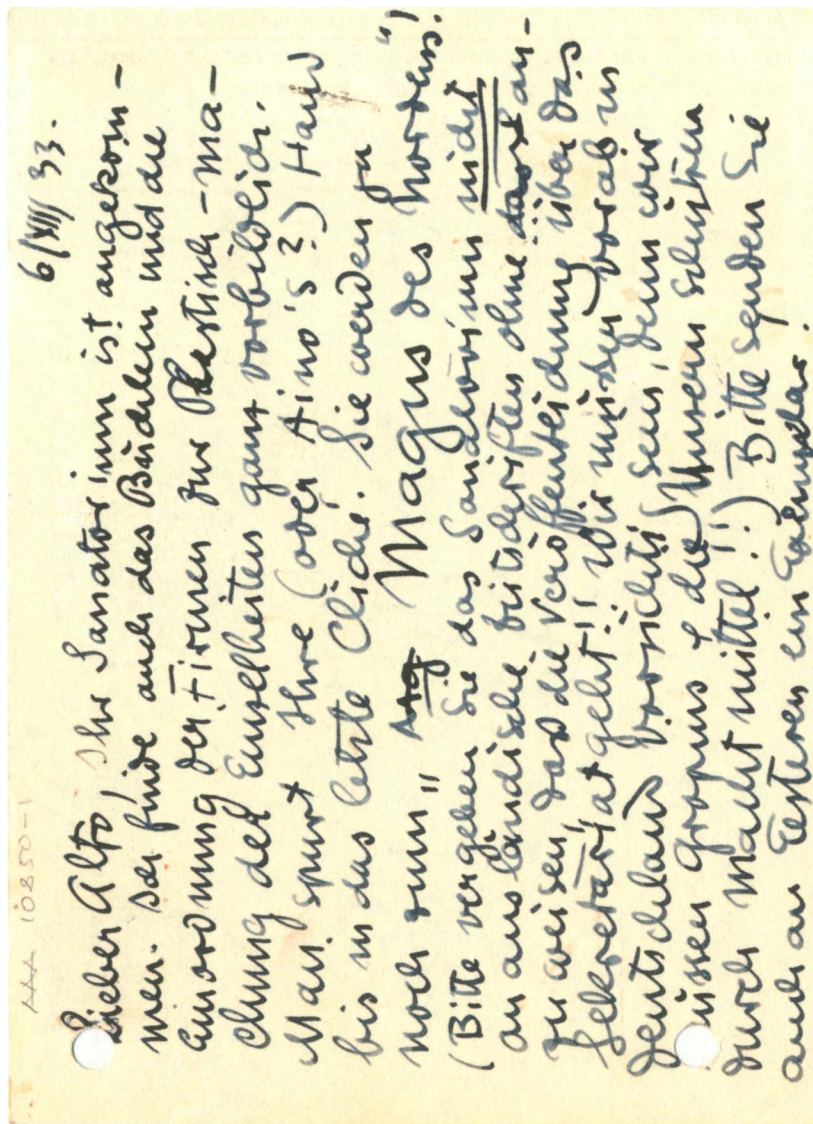 AAA 10850-1
6/XII/33.
Lieber Alto, Ihr Sanatorium ist angekom-
men. Ich finde auch das Büchlein und die
Anordnung der Firmen zur Plastisch-ma-
chung der Einzelheiten ganz vorbildlich.
Man spürt Ihre (oder Aino's?) Hand
bis in das letzte Cliché. Sie werden ja
noch zum „ Magus des Nordens"!
(Bitte vergeben Sie das Sanatorium nicht
an ausländische Zeitschriften ohne an-
zuweisen, dass die Veröffentlichung über das
Sekretariat geht!! Wir müssen vorab in
Deutschland vorsichtig sein, denn wir
müssen Gropius & die Unseren schützen
durch Machtmittel!!) Bitte senden Sie
auch an ein Exemplar.